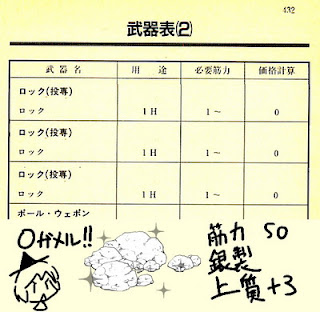 432
武器表(2)
武器名 用途 必要筋力 価格計算
ロック(投専)
ロック 1H 1~ 0
ロック(投専)
ロック 1H 1~ 0
ロック(投専)
ロック 1H 1~ 0
ポール・ウェポン
0ガメル!!
筋力 50
銀製
上質+3